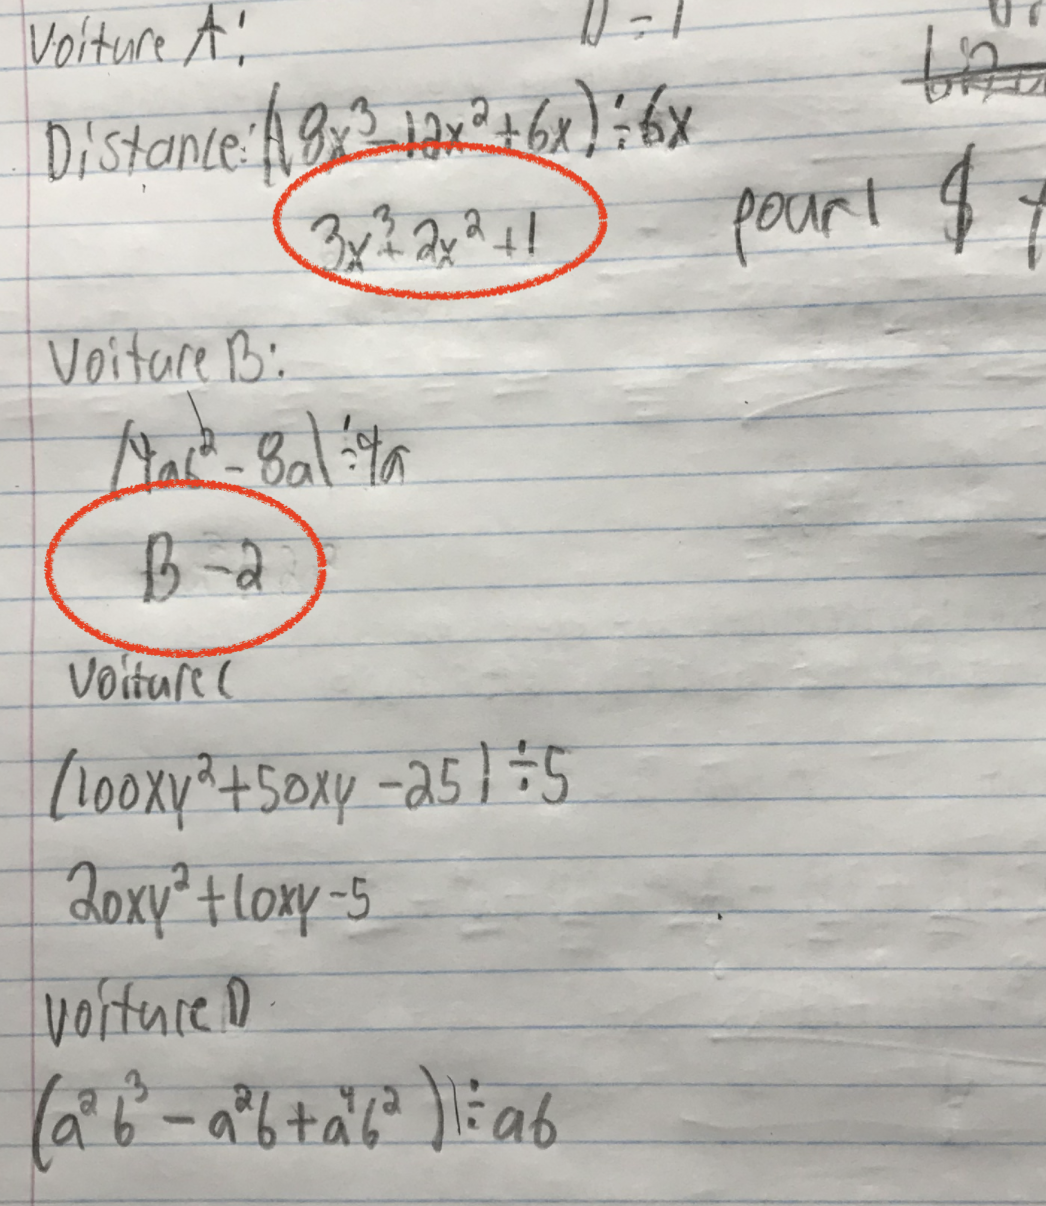 Voiture A:
D = 1
Distance: (18x³ - 12x² + 6x) ÷ 6x
3x³ + 2x² + 1
pour 1 $
Voiture B:
(4ab² - 8a) ÷ 4a
B - 2
Voiture C
(100xy² + 50xy - 25) ÷ 5
20xy² + 10xy - 5
Voiture D
(a²b³ - a²b + a⁴b²) ÷ ab